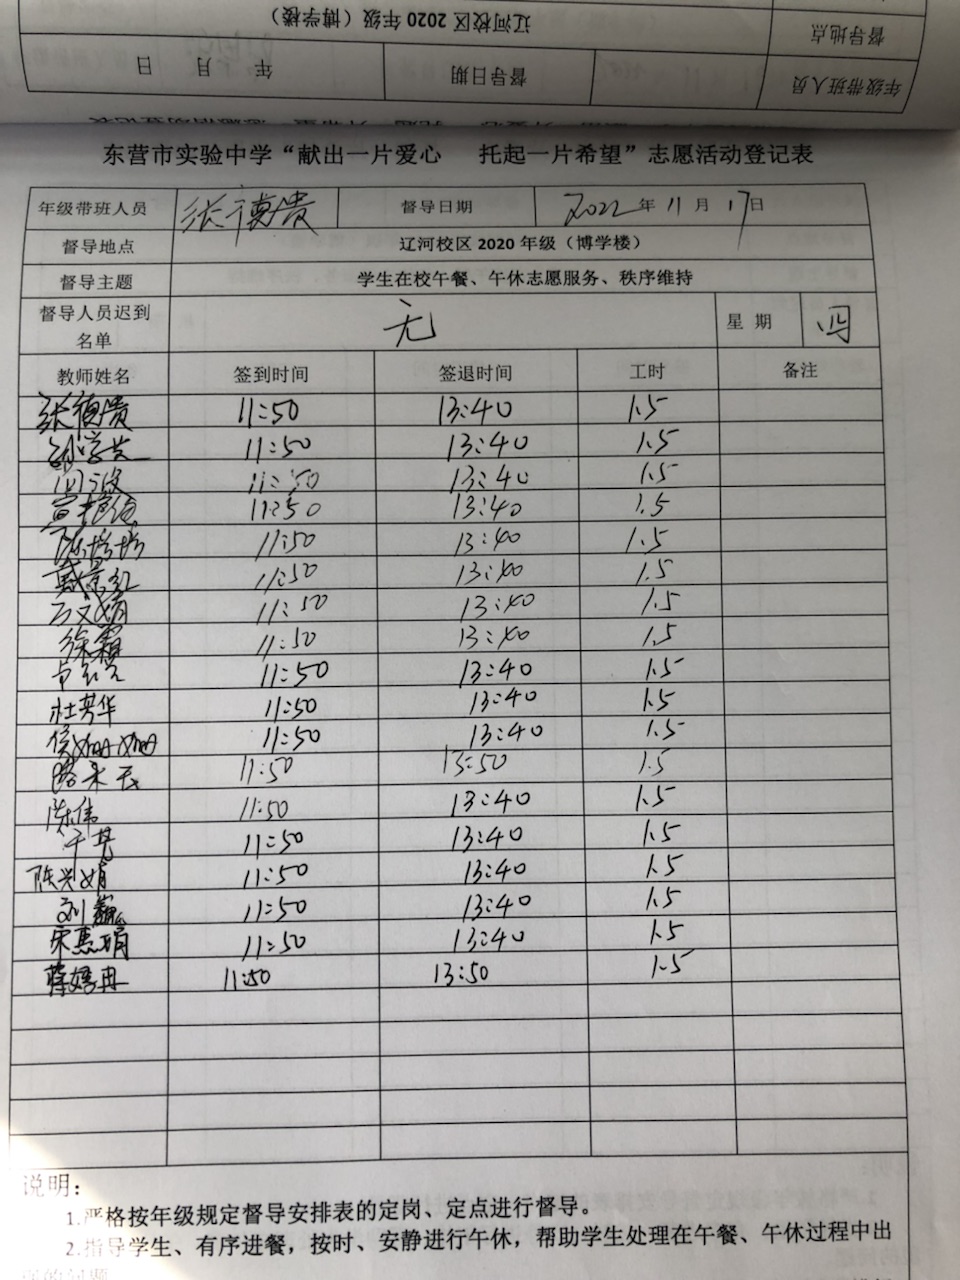 辽河校区 2020 年级（博学楼） 督导地点
年 月 日 督导日期 年级带班人员
东营市实验中学“献出一片爱心 托起一片希望”志愿活动登记表
年级带班人员 张德贵 督导日期 2022年11月17日
督导地点 辽河校区 2020 年级（博学楼）
督导主题 学生在校午餐、午休志愿服务、秩序维持
督导人员迟到名单 无 星期 四
教师姓名 签到时间 签退时间 工时 备注
张德贵 11:50 13:40 1.5
11:50 13:40 1.5
11:50 13:40 1.5
11:50 13:40 1.5
陈培培 11:50 13:40 1.5
戴景红 11:50 13:40 1.5
石文娟 11:50 13:40 1.5
徐霜 11:50 13:40 1.5
11:50 13:40 1.5
杜芳华 11:50 13:40 1.5
侯姗姗 11:50 13:40 1.5
路来云 11:50 13:50 1.5
陈伟 11:50 13:40 1.5
11:50 13:40 1.5
陈兴娟 11:50 13:40 1.5
刘巍 11:50 13:40 1.5
宋惠娟 11:50 13:40 1.5
11:50 13:50 1.5
说明：
1.严格按年级规定督导安排表的定岗、定点进行督导。
2.指导学生、有序进餐，按时、安静进行午休，帮助学生处理在午餐、午休过程中出
的问题